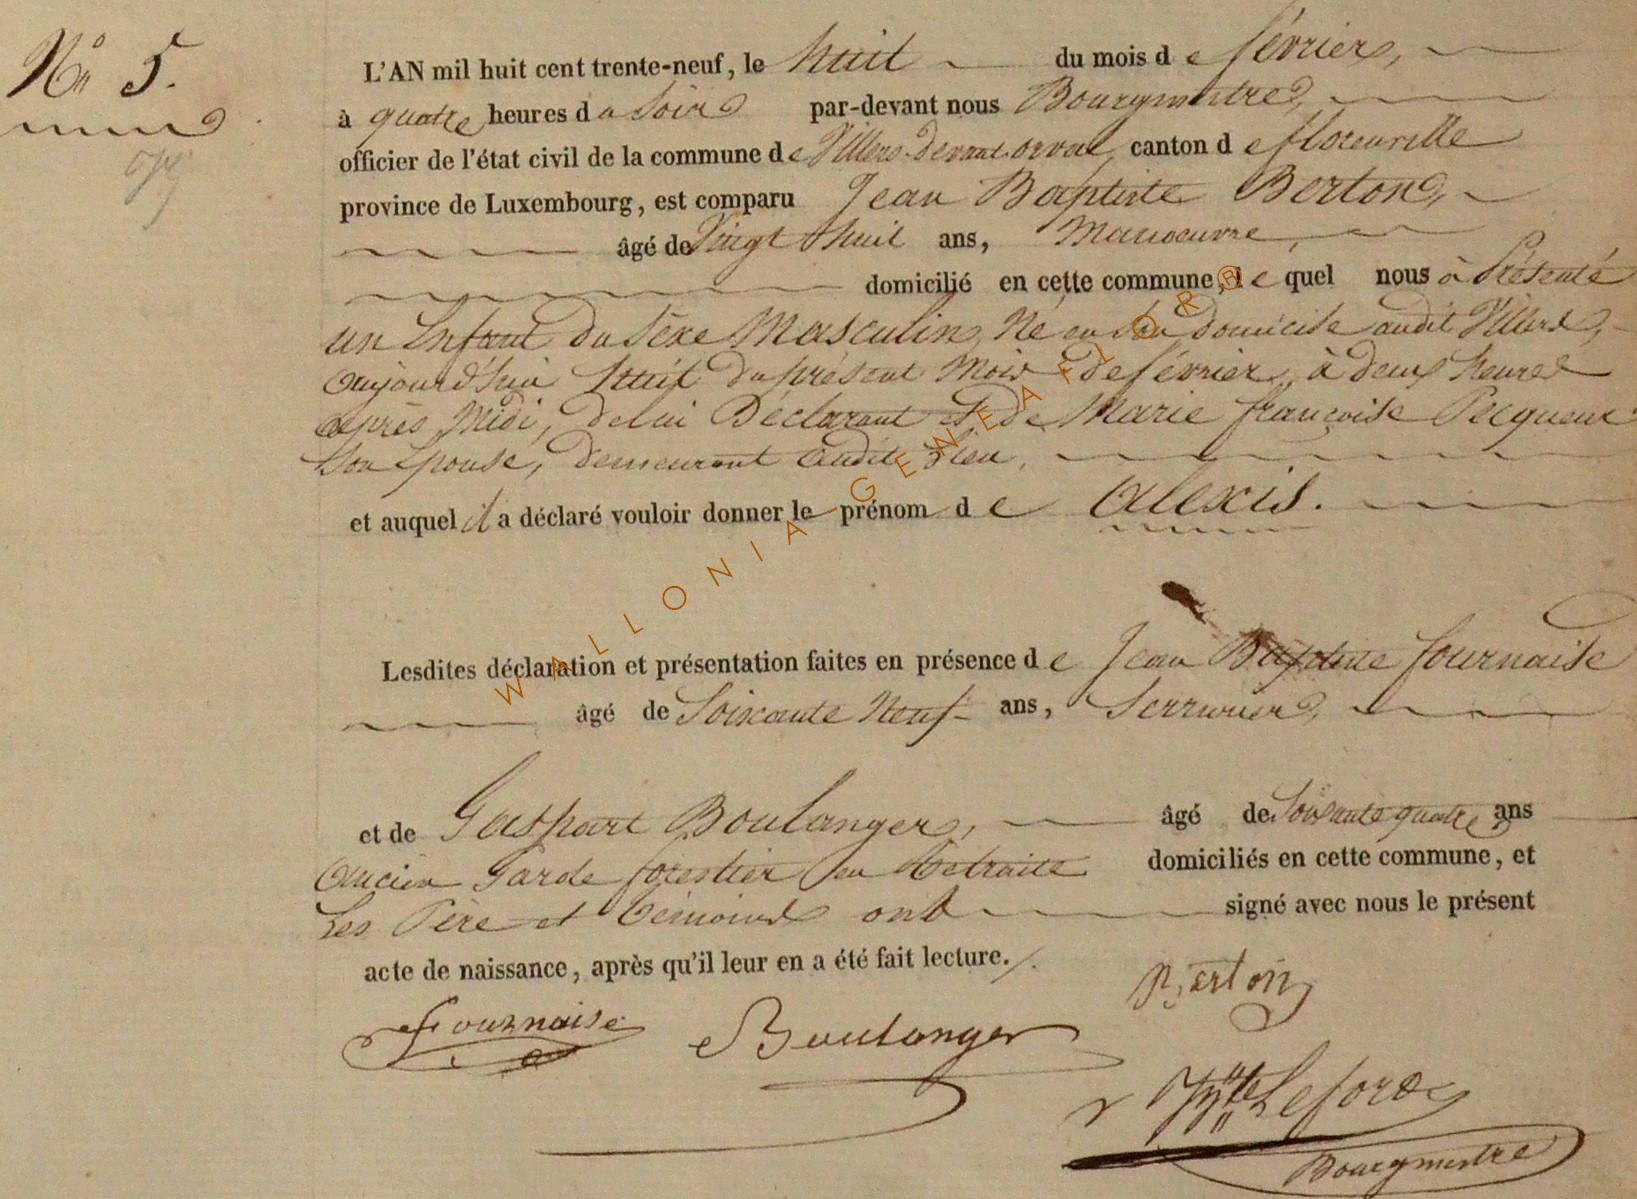 N° 5.
L'AN mil huit cent trente-neuf, le huit du mois de février,
à quatre heures du Soir par-devant nous Bourgmestre,
officier de l'état civil de la commune de Villers-devant-orval, canton de florenville
province de Luxembourg, est comparu Jean Baptiste Berton,
âgé de Vingt huit ans, Manoeuvre,
domicilié en cette commune, lequel nous à Présenté
un Enfant du Sèxe Masculin, Né en son domicile audit Villers,
aujourd'hui huit du présent Mois de février, à deux heures
après Midi, de lui Déclarant et de Marie françoise Pecqueur
Son Epouse, demeurant audit Lieu,
et auquel il a déclaré vouloir donner le prénom de Alexis.
Lesdites déclaration et présentation faites en présence de Jean Baptiste fournaise
âgé de Soixante Neuf ans, Serrurier,
et de Gaspart Boulanger, âgé de Soixante quatre ans
ancien Garde forestier en Retraite domiciliés en cette commune, et
Les Père et témoins ont signé avec nous le présent
acte de naissance, après qu'il leur en a été fait lecture./.
Berton
Fournaise Boulanger
Lefort
Bourgmestre
WALLONIA-GENEAFLOR®